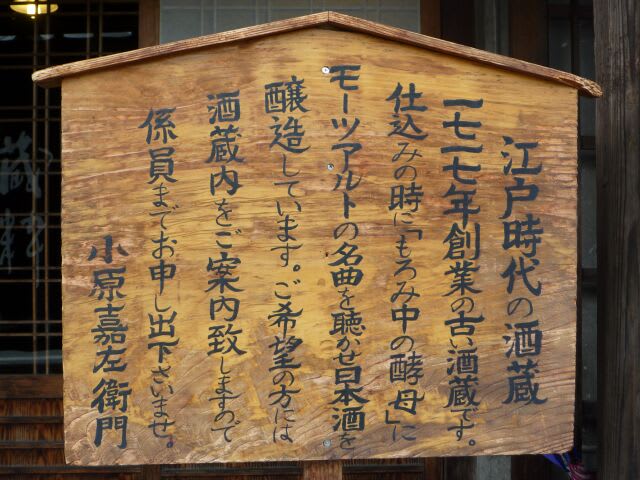 江戸時代の酒蔵
一七一七年創業の古い酒蔵です。
仕込みの時に「もろみ中の酵母」に
モーツアルトの名曲を聴かせ日本酒を
醸造しています。ご希望の方には
酒蔵内をご案内致しますので
係員までお申し出下さいませ。
小原嘉左衛門